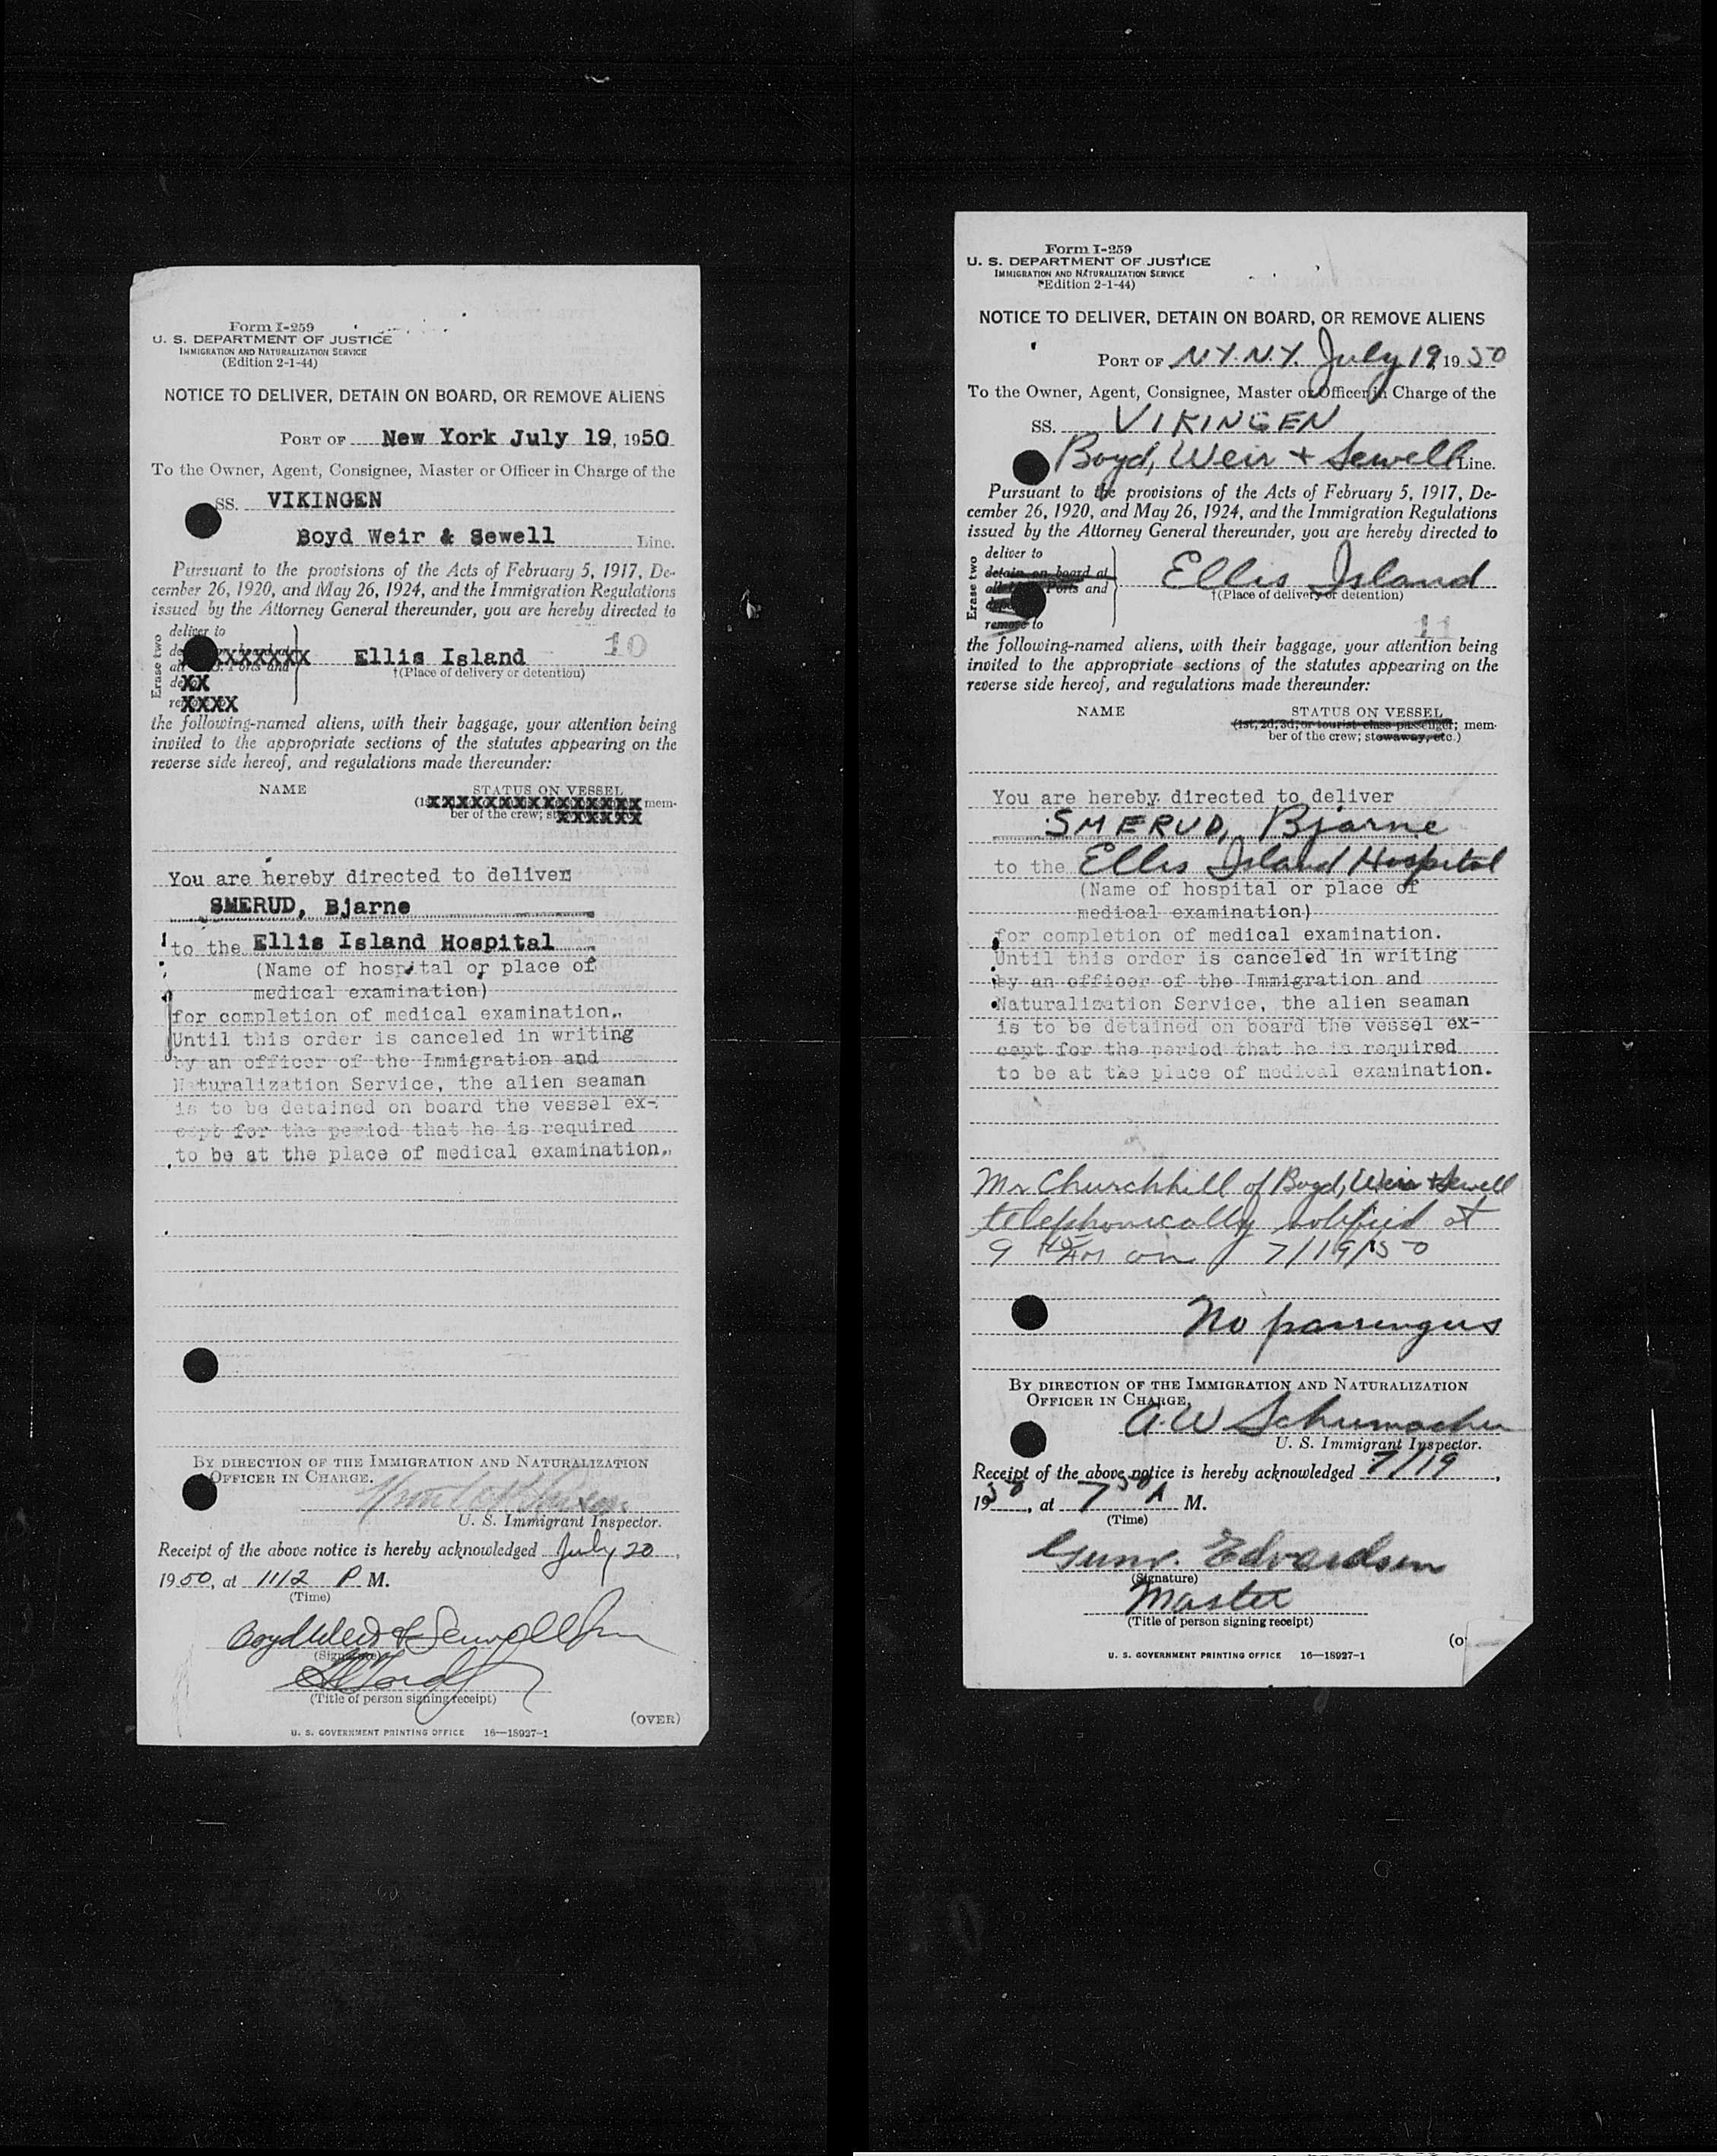 Form I-259
U. S. DEPARTMENT OF JUSTICE
IMMIGRATION AND NATURALIZATION SERVICE
(Edition 2-1-44)
NOTICE TO DELIVER, DETAIN ON BOARD, OR REMOVE ALIENS
PORT OF New York July 19, 1950
To the Owner, Agent, Consignee, Master or Officer in Charge of the
SS. VIKINGEN
Boyd Weir & Sewell Line.
Pursuant to the provisions of the Acts of February 5, 1917, De-
cember 26, 1920, and May 26, 1924, and the Immigration Regulations
issued by the Attorney General thereunder, you are hereby directed to
Erase two
deliver to
XXXXXXX Ellis Island 10
Ports and †(Place of delivery or detention)
XX
XXXX
the following-named aliens, with their baggage, your attention being
invited to the appropriate sections of the statutes appearing on the
reverse side hereof, and regulations made thereunder:
NAME STATUS ON VESSEL
XXXXXXXXXXXXXXXXX mem-
ber of the crew; XXXXXX
You are hereby directed to deliver
SMERUD, Bjarne
to the Ellis Island Hospital
(Name of hospital or place of
medical examination)
for completion of medical examination.
Until this order is canceled in writing
by an officer of the Immigration and
Naturalization Service, the alien seaman
is to be detained on board the vessel ex-
cept for the period that he is required
to be at the place of medical examination.
BY DIRECTION OF THE IMMIGRATION AND NATURALIZATION
OFFICER IN CHARGE.
U. S. Immigrant Inspector.
Receipt of the above notice is hereby acknowledged July 20,
1950, at 1112 P M.
(Time)
Boyd Weir & Sewell Inc
(Signature)
(Title of person signing receipt)
(OVER)
U. S. GOVERNMENT PRINTING OFFICE 16—18927-1
Form I-259
U. S. DEPARTMENT OF JUSTICE
IMMIGRATION AND NATURALIZATION SERVICE
(Edition 2-1-44)
NOTICE TO DELIVER, DETAIN ON BOARD, OR REMOVE ALIENS
PORT OF N.Y. N.Y. July 19 1950
To the Owner, Agent, Consignee, Master or Officer in Charge of the
SS. VIKINGEN
Boyd, Weir + Sewell Line.
Pursuant to the provisions of the Acts of February 5, 1917, De-
cember 26, 1920, and May 26, 1924, and the Immigration Regulations
issued by the Attorney General thereunder, you are hereby directed to
Erase two
deliver to
detain on board at Ellis Island
Ports and †(Place of delivery or detention)
remove to 11
the following-named aliens, with their baggage, your attention being
invited to the appropriate sections of the statutes appearing on the
reverse side hereof, and regulations made thereunder:
NAME STATUS ON VESSEL
(1st, 2d, 3d, or tourist class passenger; mem-
ber of the crew; stowaway, etc.)
You are hereby directed to deliver
SMERUD, Bjarne
to the Ellis Island Hospital
(Name of hospital or place of
medical examination)
for completion of medical examination.
Until this order is canceled in writing
by an officer of the Immigration and
Naturalization Service, the alien seaman
is to be detained on board the vessel ex-
cept for the period that he is required
to be at the place of medical examination.
Mr Churchhill of Boyd, Weir + Sewell
telephonically notified at
9 45 AM on 7/19/50
No passengers
BY DIRECTION OF THE IMMIGRATION AND NATURALIZATION
OFFICER IN CHARGE.
A. W Schumacher
U. S. Immigrant Inspector.
Receipt of the above notice is hereby acknowledged 7/19,
1950, at 7 50 A M.
(Time)
Gunv. Edvardsen
(Signature)
Master
(Title of person signing receipt)
U. S. GOVERNMENT PRINTING OFFICE 16—18927-1